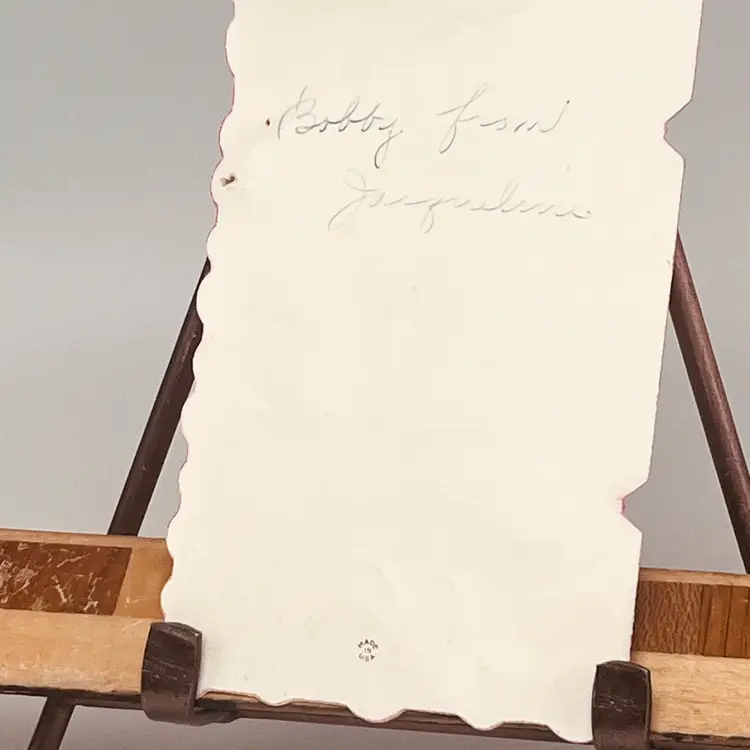 Bobby from
Jacqueline
MADE
IN
USA